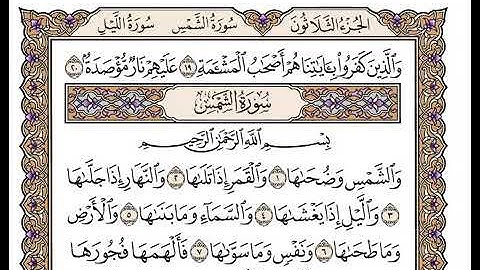 الجزء الثلاثون سورة الشمس سورة الليل
وَٱلَّذِينَ كَفَرُوا۟ بِـَٔايَـٰتِنَا هُمْ أَصْحَـٰبُ ٱلْمَشْـَٔمَةِ ١٩ عَلَيْهِمْ نَارٌ مُّؤْصَدَةٌۢ ٢٠
سُورَةُ الشَّمْسِ
بِسْمِ ٱللَّهِ ٱلرَّحْمَـٰنِ ٱلرَّحِيمِ
وَٱلشَّمْسِ وَضُحَىٰهَا ١ وَٱلْقَمَرِ إِذَا تَلَىٰهَا ٢ وَٱلنَّهَارِ إِذَا جَلَّىٰهَا
٣ وَٱلَّيْلِ إِذَا يَغْشَىٰهَا ٤ وَٱلسَّمَآءِ وَمَا بَنَىٰهَا ٥ وَٱلْأَرْضِ
وَمَا طَحَىٰهَا ٦ وَنَفْسٍ وَمَا سَوَّىٰهَا ٧ فَأَلْهَمَهَا فُجُورَهَا